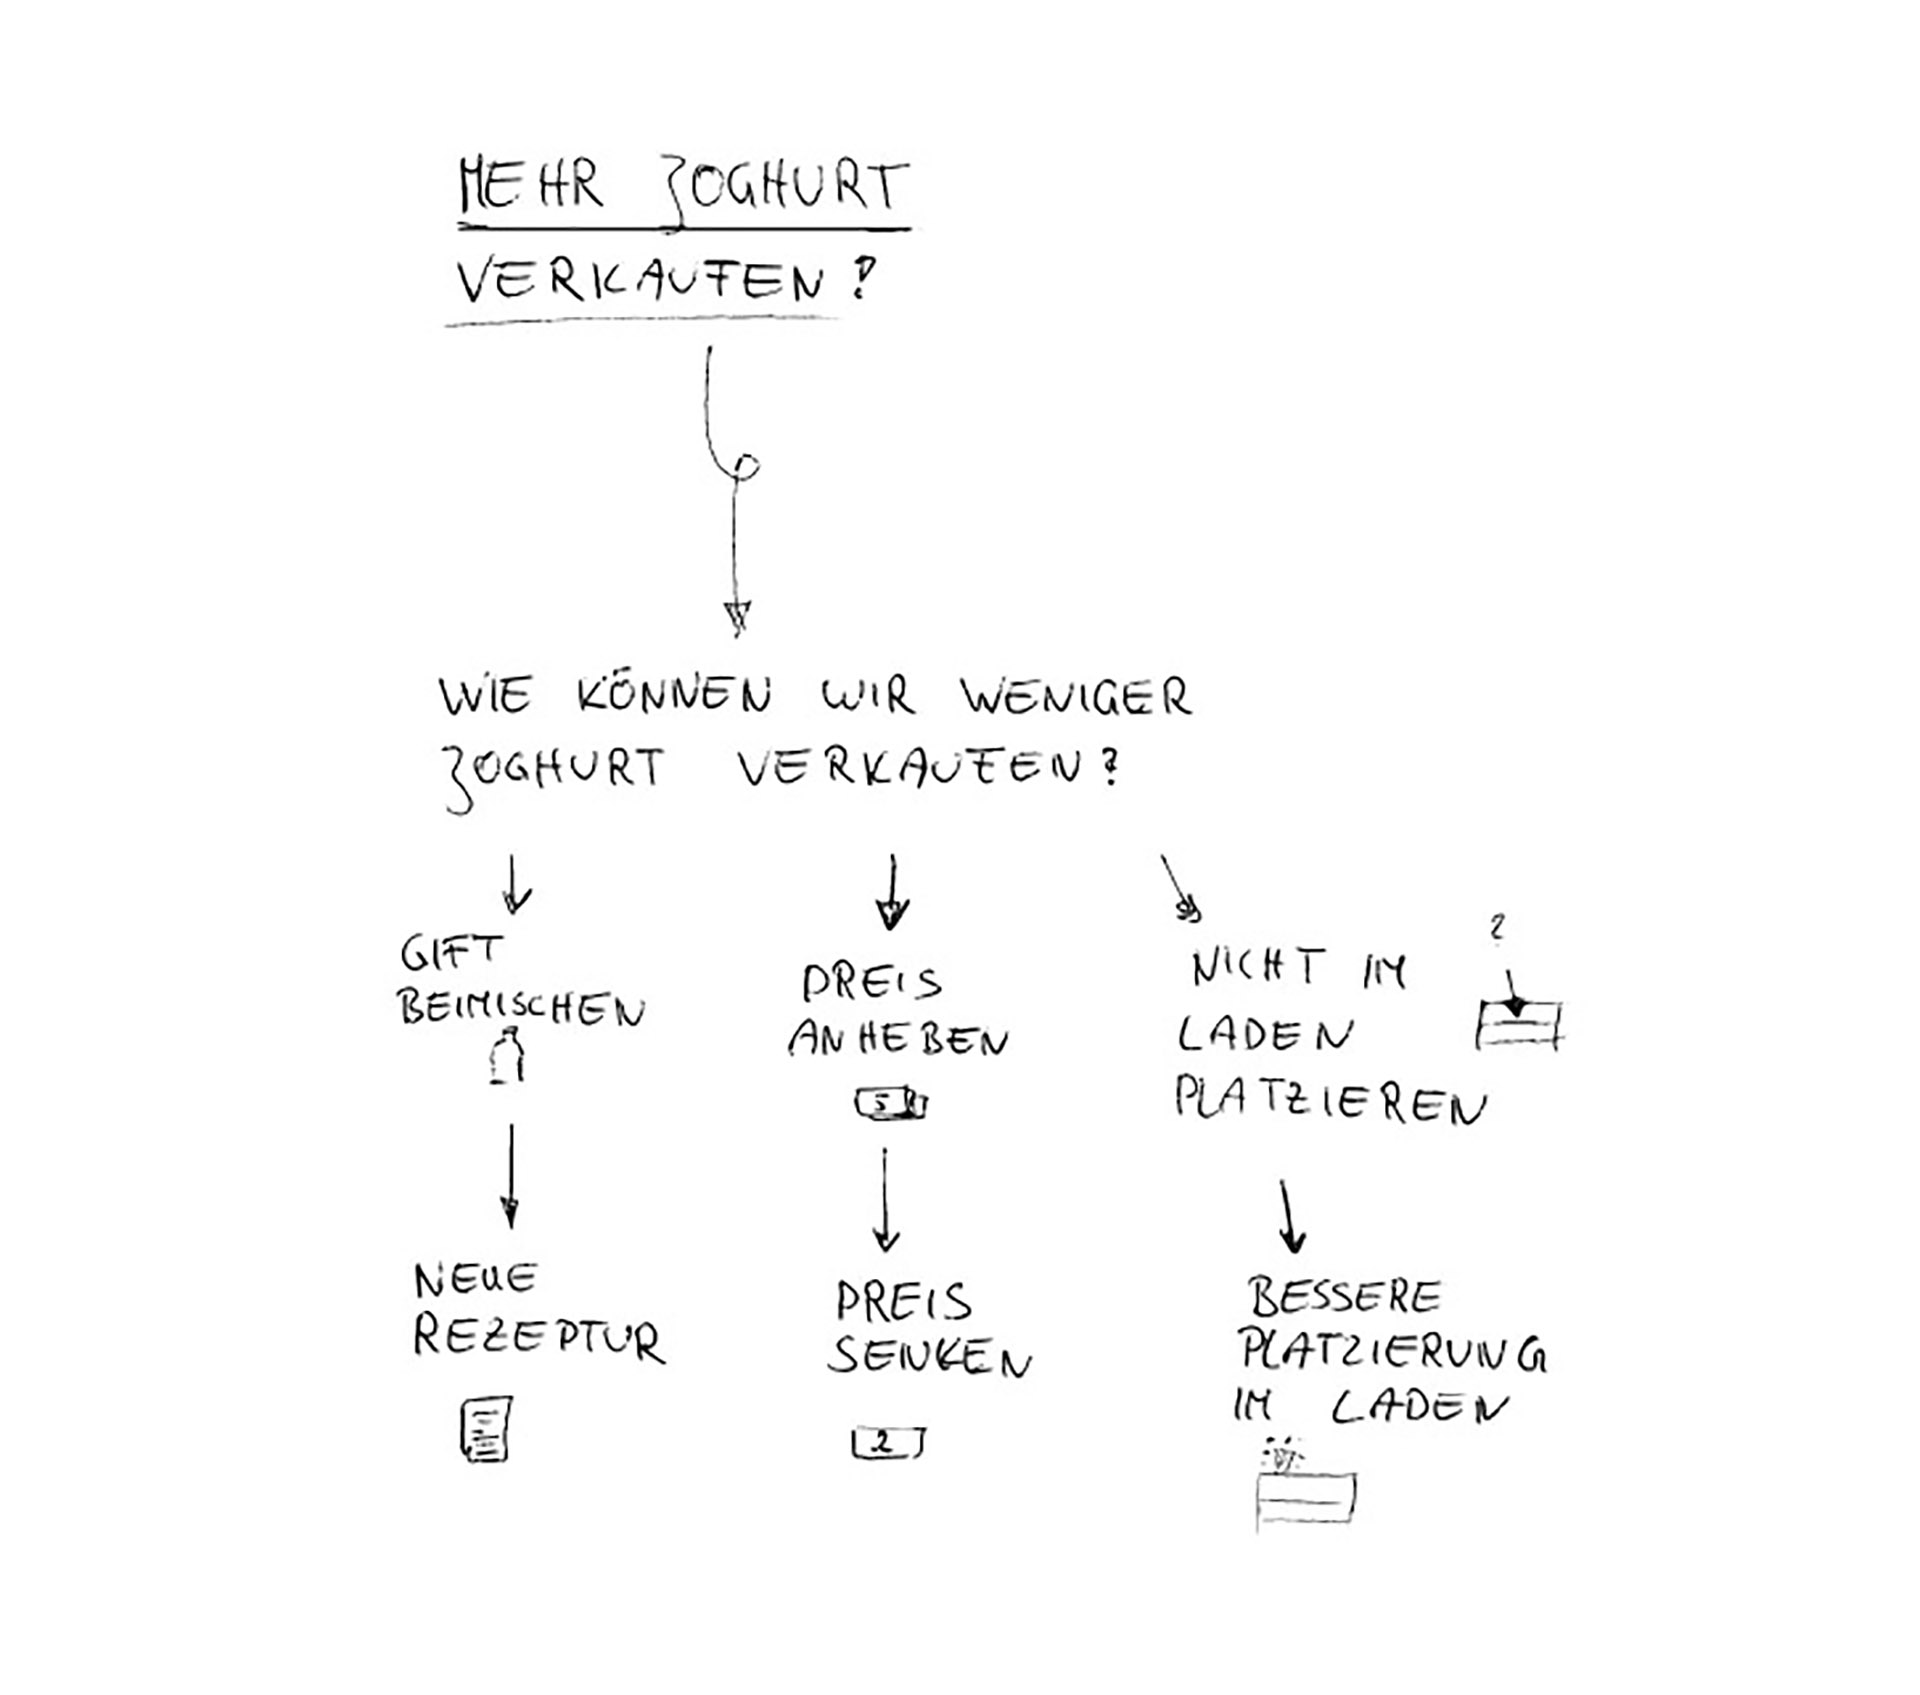 MEHR JOGHURT
VERKAUFEN?
WIE KÖNNEN WIR WENIGER
JOGHURT VERKAUFEN?
GIFT
BEIMISCHEN
PREIS
ANHEBEN
5
NICHT IM
LADEN
PLATZIEREN
?
NEUE
REZEPTUR
PREIS
SENKEN
2
BESSERE
PLATZIERUNG
IM LADEN